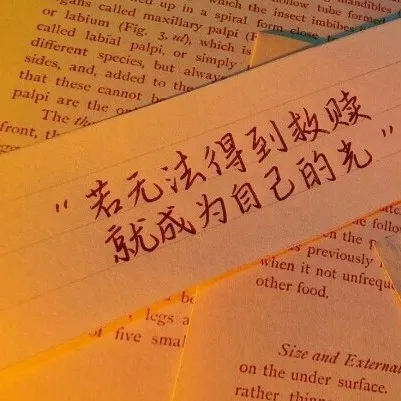 gans called maxillary palpi (F
or labium (Fig. 3,
which is
called labial palpi, or simply
different species, but always
sides, and, added to the
that these cannot be
palpi are the
The
front, th
up in a spiral form close to
which the insect imbibes
tube formed
mandibles
"若无法得到救赎
就成为自己的光"
the follow
in the
s previously
when it not unfrequ
other food.
legs a
of five smal
Size and External
on the under surface.
rather thinn